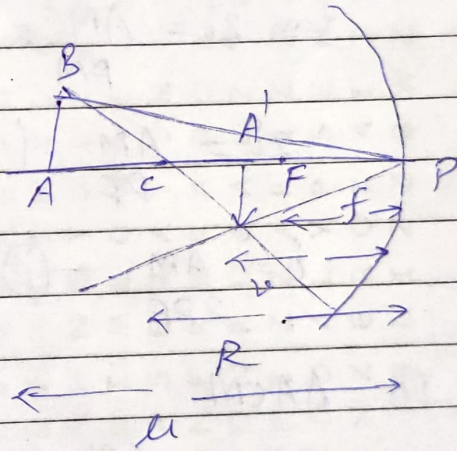 B
A'
A C F P
f
v
R
u